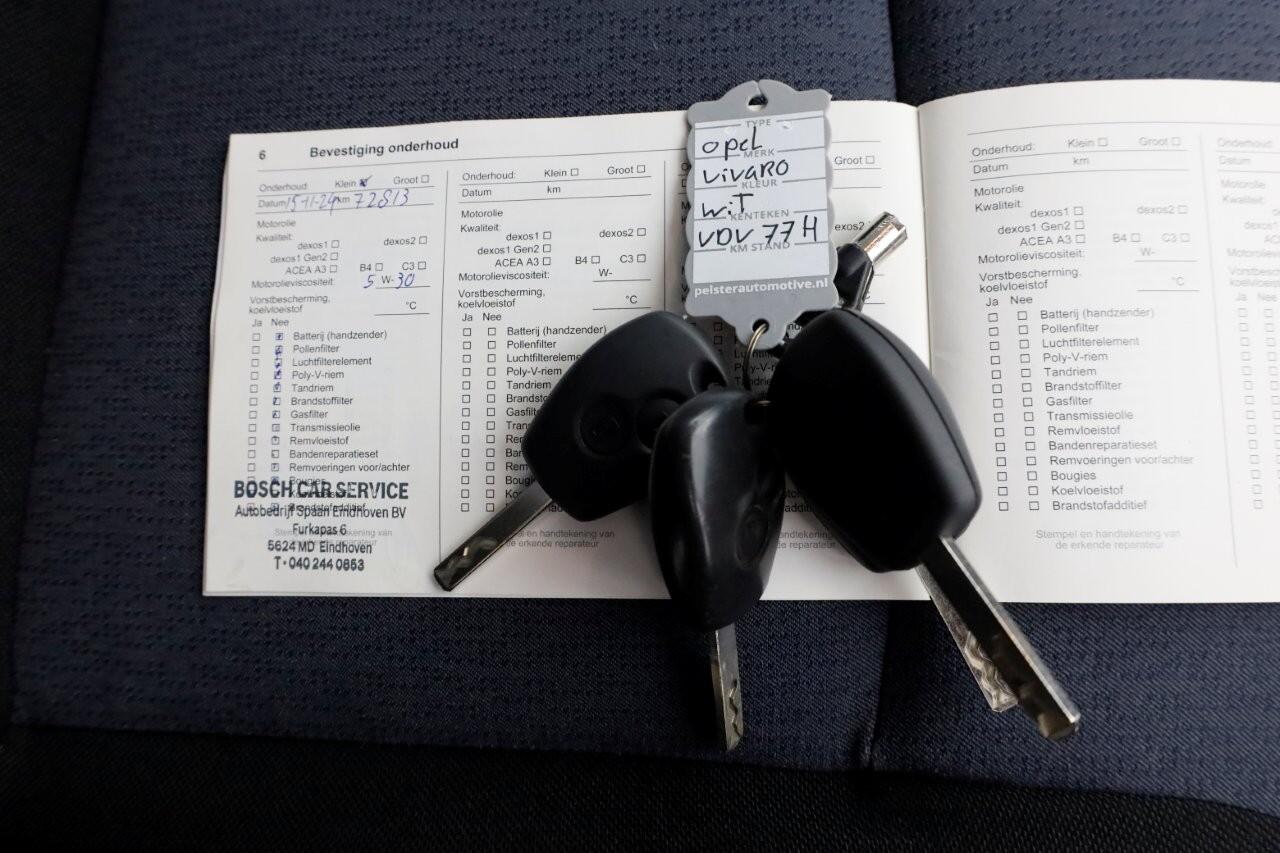 6 Bevestiging onderhoud
Onderhoud: Klein Groot
Datum 15-11-24 km 72813
Motorolie
Kwaliteit:
dexos1 dexos2
dexos1 Gen2
ACEA A3 B4 C3
Motorolieviscositeit: 5 W-30
Vorstbescherming,
koelvloeistof °C
Ja Nee
Batterij (handzender)
Pollenfilter
Luchtfilterelement
Poly-V-riem
Tandriem
Brandstoffilter
Gasfilter
Transmissieolie
Remvloeistof
Bandenreparatieset
Remvoeringen voor/achter
Bougies
BOSCH CAR SERVICE
Autobedrijf Spaan Eindhoven BV
Furkapas 6
5624 MD Eindhoven
T·040 244 0853
Onderhoud: Klein Groot
Datum km
Motorolie
Kwaliteit:
dexos1 dexos2
dexos1 Gen2
ACEA A3 B4 C3
Motorolieviscositeit: W-
Vorstbescherming,
koelvloeistof °C
Ja Nee
Batterij (handzender)
Pollenfilter
Luchtfilterelem
Poly-V-riem
Tandriem
Brands
Gasfilt
Tran
Rem
Ban
Rem
Boug
Ko
en handtekening van
de erkende reparateur
TYPE
opel
MERK
vivaro
KLEUR
wit
KENTEKEN
VDV 77H
KM STAND
pelsterautomotive.nl
Groot
dexos2
Onderhoud: Klein Groot
Datum km
Motorolie
Kwaliteit:
dexos1 dexos2
dexos1 Gen2
ACEA A3 B4 C3
Motorolieviscositeit: W-
Vorstbescherming,
koelvloeistof °C
Ja Nee
Batterij (handzender)
Pollenfilter
Luchtfilterelement
Poly-V-riem
Tandriem
Brandstoffilter
Gasfilter
Transmissieolie
Remvloeistof
Bandenreparatieset
Remvoeringen voor/achter
Bougies
Koelvloeistof
Brandstofadditief
Stempel en handtekening van
de erkende reparateur
Onderhoud:
Datum
Motorolie
Kwaliteit:
Ja Nee